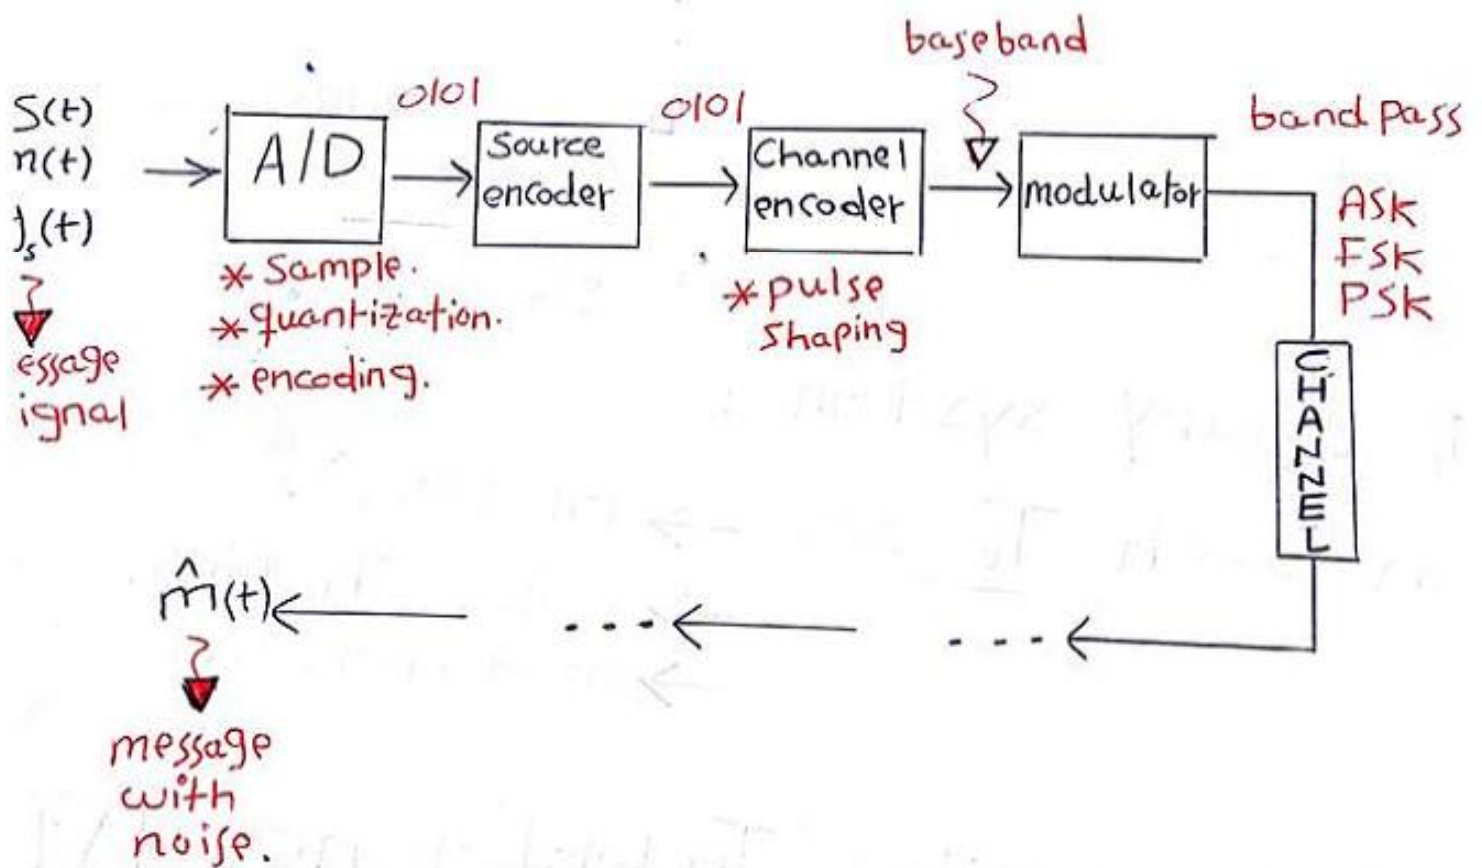 baseband
S(t)
n(t)
j_s(t)
essage
ignal
A/D
* Sample.
* quantization.
* encoding.
0101
Source
encoder
0101
Channel
encoder
* pulse
shaping
modulator
band pass
ASK
FSK
PSK
CHANNEL
m̂(t)
...
...
message
with
noise.